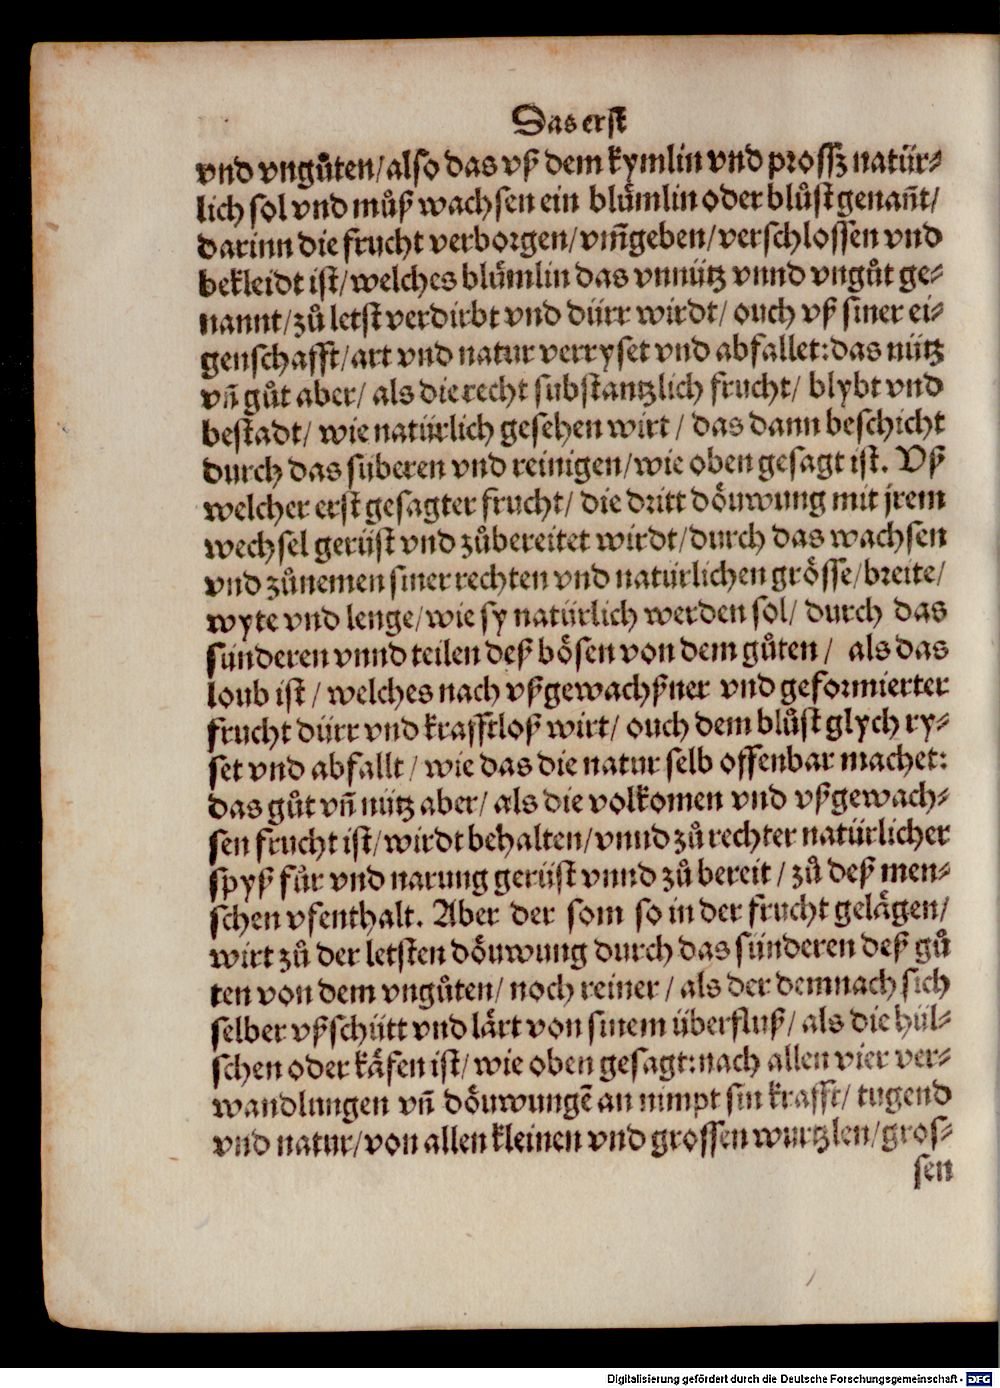 Das erst
vnd vngůten/also das vß dem kymlin vnd prossz natür-
lich sol vnd můß wachsen ein blůmlin oder blůst genañt/
darinn die frucht verborgen/vm̃geben/verschlossen vnd
bekleidt ist/welches blůmlin das vnnütz vnnd vngůt ge-
nannt/zů letst verdirbt vnd dürr wirdt/ouch vß siner ei-
genschafft/art vnd natur verryset vnd abfallet:das nütz
vñ gůt aber/als die recht substantzlich frucht/blybt vnd
bestadt/wie natürlich gesehen wirt/das dann beschicht
durch das süberen vnd reinigen/wie oben gesagt ist. Vß
welcher erst gesagter frucht/die dritt döuwung mit jrem
wechsel gerüst vnd zůbereitet wirdt/durch das wachsen
vnd zůnemen siner rechten vnd natürlichen grösse/breite/
wyte vnd lenge/wie sy natürlich werden sol/durch das
sünderen vnnd teilen deß bösen von dem gůten/ als das
loub ist/welches nach vßgewachßner vnd geformierter
frucht dürr vnd krafftloß wirt/ouch dem blůst glych ry-
set vnd abfallt/wie das die natur selb offenbar machet:
das gůt vñ nütz aber/als die volkomen vnd vßgewach-
sen frucht ist/wirdt behalten/vnnd zů rechter natürlicher
spyß für vnd narung gerüst vnnd zů bereit/zů deß men-
schen vfenthalt. Aber der som so in der frucht gelägen/
wirt zů der letsten döuwung durch das sünderen deß gů
ten von dem vngůten/noch reiner/als der demnach sich
selber vßschütt vnd lärt von sinem überfluß/als die hül-
schen oder käfen ist/wie oben gesagt:nach allen vier ver-
wandlungen vñ döuwungẽ an nimpt sin krafft/tugend
vnd natur/von allen kleinen vnd grossen wurtzlen/gros-
sen
Digitalisierung gefördert durch die Deutsche Forschungsgemeinschaft - DFG